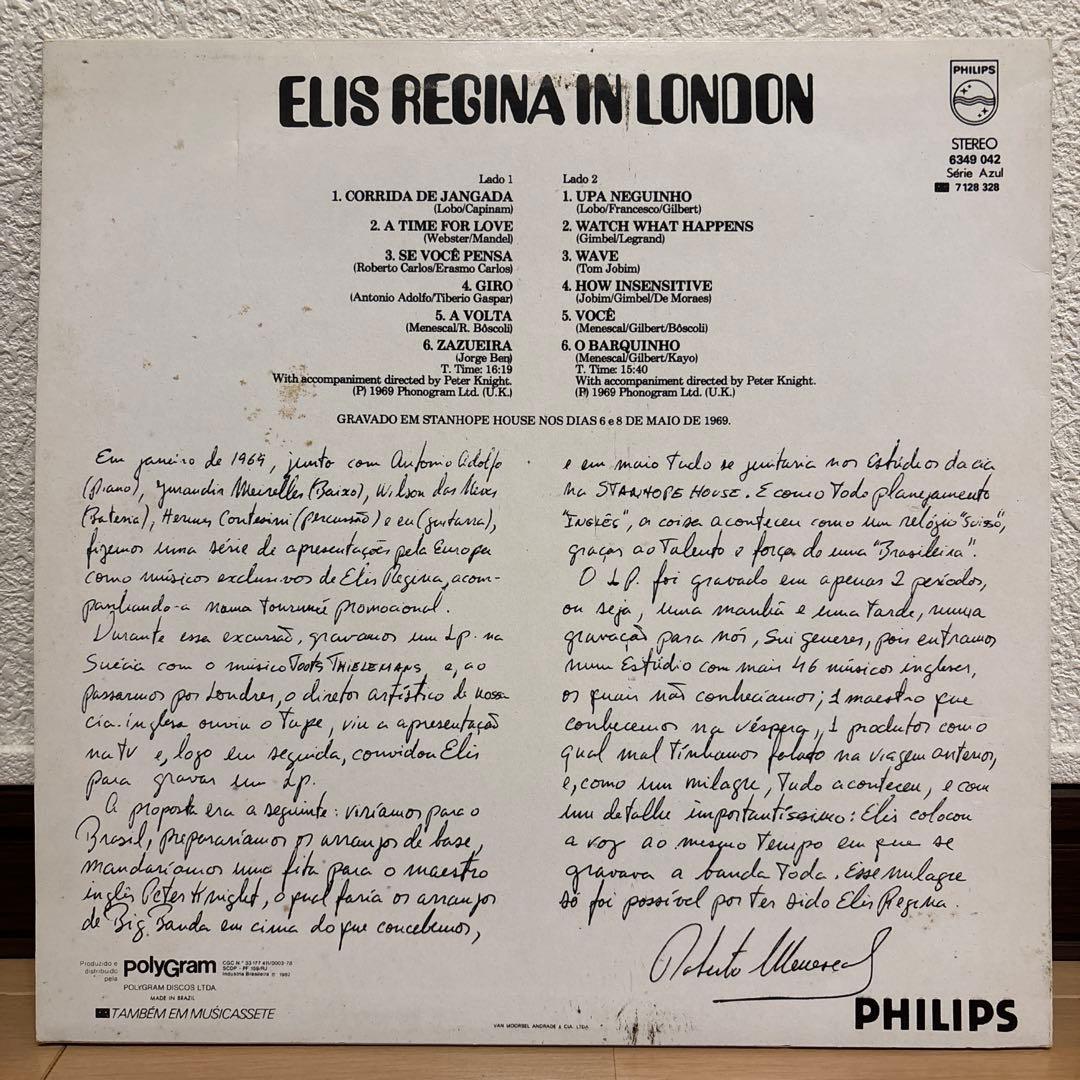 ELIS REGINA IN LONDON
PHILIPS
STEREO
6349 042
Série Azul
7128 328
Lado 1
1. CORRIDA DE JANGADA
(Lobo/Capinam)
2. A TIME FOR LOVE
(Webster/Mandel)
3. SE VOCÊ PENSA
(Roberto Carlos/Erasmo Carlos)
4. GIRO
(Antonio Adolfo/Tiberio Gaspar)
5. A VOLTA
(Menescal/R. Bôscoli)
6. ZAZUEIRA
(Jorge Ben)
T. Time: 16:19
With accompaniment directed by Peter Knight.
(P) 1969 Phonogram Ltd. (U.K.)
Lado 2
1. UPA NEGUINHO
(Lobo/Francesco/Gilbert)
2. WATCH WHAT HAPPENS
(Gimbel/Legrand)
3. WAVE
(Tom Jobim)
4. HOW INSENSITIVE
(Jobim/Gimbel/De Moraes)
5. VOCÊ
(Menescal/Gilbert/Bôscoli)
6. O BARQUINHO
(Menescal/Gilbert/Kayo)
T. Time: 15:40
With accompaniment directed by Peter Knight.
(P) 1969 Phonogram Ltd. (U.K.)
GRAVADO EM STANHOPE HOUSE NOS DIAS 6 e 8 DE MAIO DE 1969.
Em janeiro de 1969, junto com Antonio Adolfo
(piano), Jurandir Meirelles (Baixo), Wilson das Neves
(Bateria), Hermes Contesini (percussão) e eu (guitarra),
fizemos uma série de apresentações pela Europa
como músicos exclusivos de Elis Regina, acom-
panhando-a numa tournée promocional.
Durante essa excursão, gravamos um Lp. na
Suécia com o músico TOOTS THIELEMANS, e, ao
passarmos por Londres, o diretor artístico de nossa
cia. inglesa ouviu o Tape, viu a apresentação
na TV e, logo em seguida, convidou Elis
para gravar um Lp.
A proposta era a seguinte: viríamos para o
Brasil, prepararíamos os arranjos de base,
mandaríamos uma fita para o maestro
inglês Peter Knight, o qual faria os arranjos
de Big Banda em cima do que concebemos,
e em maio tudo se juntaria nos Estúdios da cia
na STANHOPE HOUSE. E como todo planejamento
"INGLÊS", a coisa aconteceu como um relógio "Suisso",
graças ao Talento e força de uma "Brasileira".
O LP. foi gravado em apenas 2 períodos,
ou seja, uma manhã e uma tarde, numa
gravação para nós, Sui generes, pois entramos
num Estúdio com mais 46 músicos ingleses,
os quais não conhecíamos; 1 maestro que
conhecemos na véspera, 1 produtor com o
qual mal Tínhamos falado na viagem anterior,
e, como um milagre, Tudo aconteceu, e com
um detalhe importantíssimo: Elis colocou
a voz ao mesmo Tempo em que se
gravava a banda Toda. Esse milagre
só foi possível por ter sido Elis Regina.
Roberto Menescal
Produzido e
distribuido
pela
polyGram
CGC N.º 33 177 411/0003-78
SCDP - PF 159/RJ
Indústria Brasileira ℗ 1982
POLYGRAM DISCOS LTDA.
MADE IN BRAZIL
TAMBÉM EM MUSICASSETE
VAN MOORSEL ANDRADE & CIA. LTDA
PHILIPS